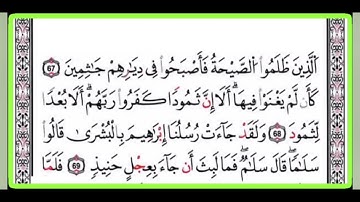 ٱلَّذِينَ ظَلَمُوا۟ ٱلصَّيْحَةُ فَأَصْبَحُوا۟ فِى دِيَـٰرِهِمْ جَـٰثِمِينَ ٦٧
كَأَن لَّمْ يَغْنَوْا۟ فِيهَآ ۗ أَلَآ إِنَّ ثَمُودَا۟ كَفَرُوا۟ رَبَّهُمْ ۗ أَلَا بُعْدًا
لِّثَمُودَ ٦٨ وَلَقَدْ جَآءَتْ رُسُلُنَآ إِبْرَٰهِيمَ بِٱلْبُشْرَىٰ قَالُوا۟
سَلَـٰمًا ۖ قَالَ سَلَـٰمٌ ۖ فَمَا لَبِثَ أَن جَآءَ بِعِجْلٍ حَنِيذٍ ٦٩ فَلَمَّا